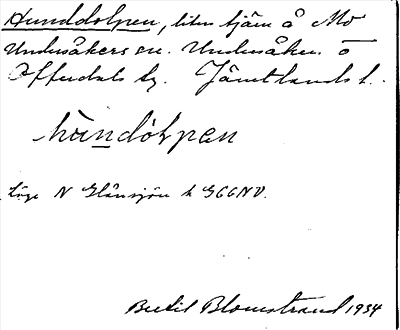 Hunddölpen, liten tjärn å Mo
Undersåkers sn. Undersåker o
Offerdals tg. Jämtlands l.
hùndö̀ḷpen
Läge N Glånsjön h GGGNV.
Bertil Blomstrand 1934